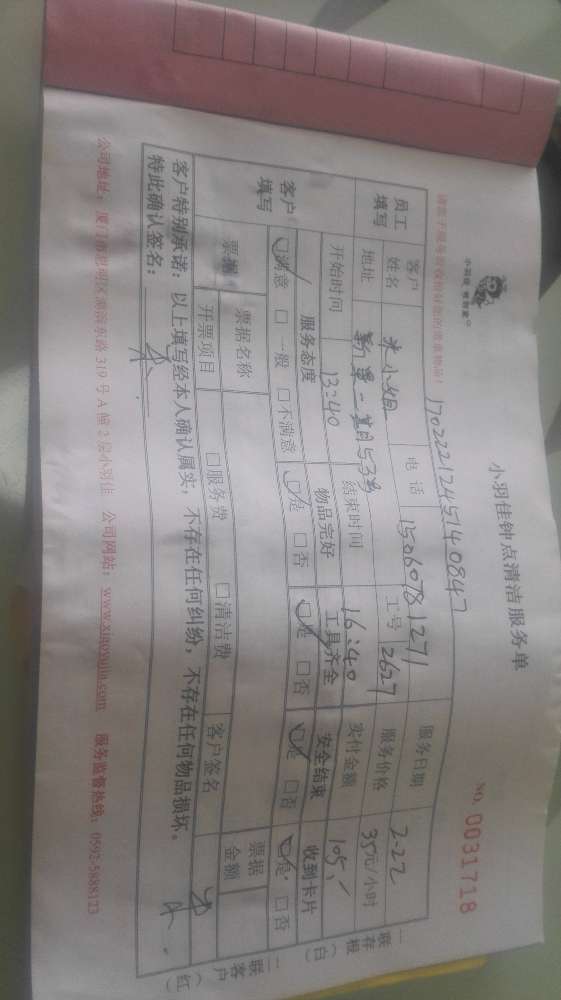 小羽佳钟点清洁服务单
NO. 0031718
小羽佳 在您家
1702221245140847
请您于服务前收拾好您的贵重物品！
员工填写
客户姓名 米小姐 电话 15060781271 服务日期 2-22
地址 新景一期53号 工号 2627 服务价格 35元/小时
开始时间 13:40 结束时间 16:40 实付金额 105/
客户填写
服务态度 物品完好 工具齐全 安全结束 收到卡片
☑满意 □一般 □不满意 ☑是 □否 ☑是 □否 ☑是 □否 ☑是 □否
票据 票据名称 客户签名 票据金额
开票项目 □服务费 □清洁费
客户特别承诺：以上填写经本人确认属实，不存在任何纠纷，不存在任何物品损坏。
特此确认签名：
一联存根（白） 二联客户（红）
公司地址：厦门市思明区湖滨东路319号A幢2层小羽佳 公司网站：www.xiaoyujia.com 服务监督热线：0592-5888123